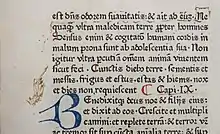 est dñs odorem suauitatis: & ait ad eū: Ne
quaq̃ vltra maledicam terre ꝓpter homines
Sensus enim & cogitatō humani cordis in
malum prona sunt ab adolescentia sua. Non
igitur vltra ꝑcutiā omnem animā viuentem
sicut feci. Cunctis diebꝰ terre sementis et
messis: frigus et estus: estas & hiems: nox
et dies non requiescent. Capi. IX.
Benedixitqȝ deus noe & filiis eius:
et dixit ad eos. Crescite et multipli
camini & implete terram. et terror
ac tremor sit suꝑ cuncta animalia terre: &